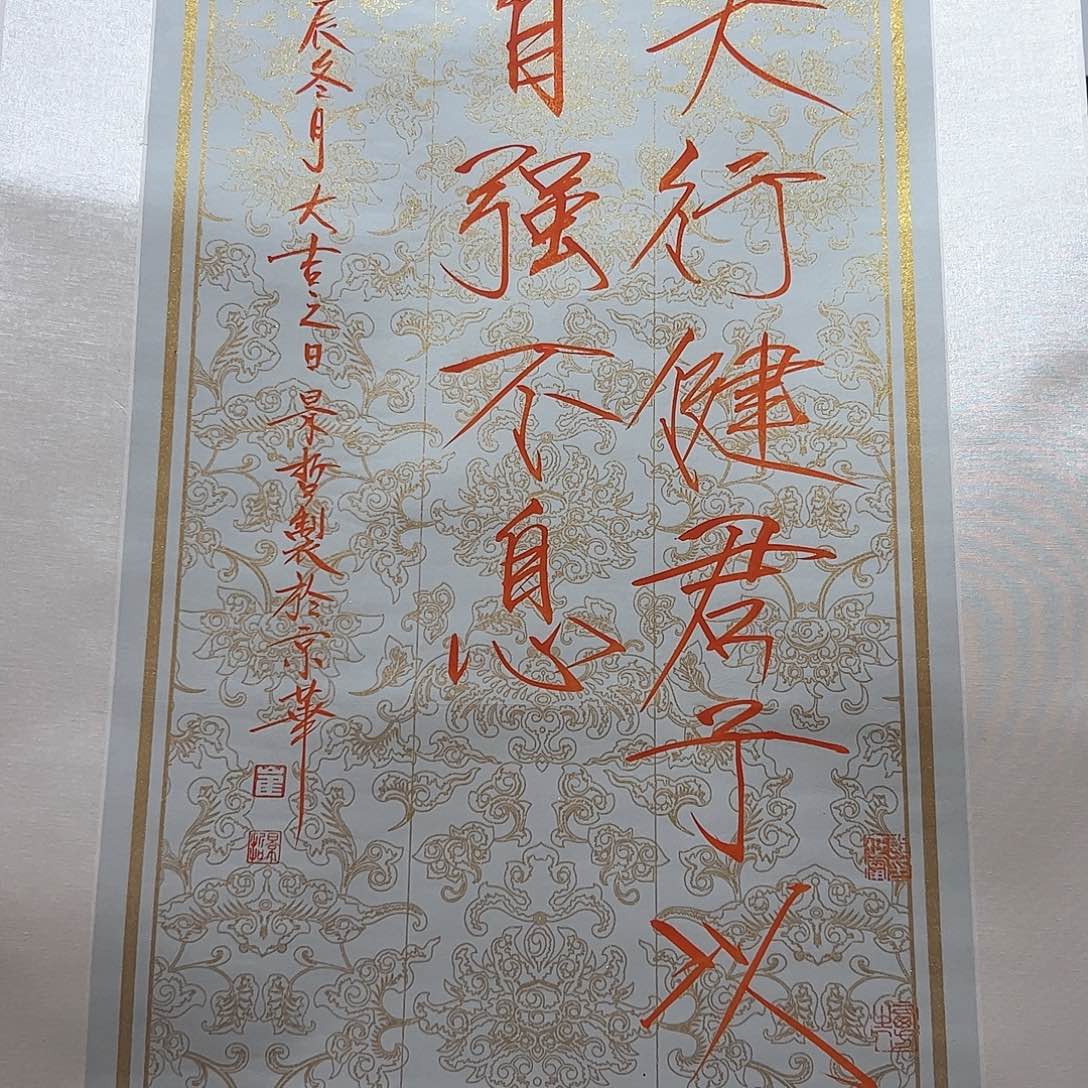 天行健君子以
自强不息
辰冬月大吉之日景哲製於京華